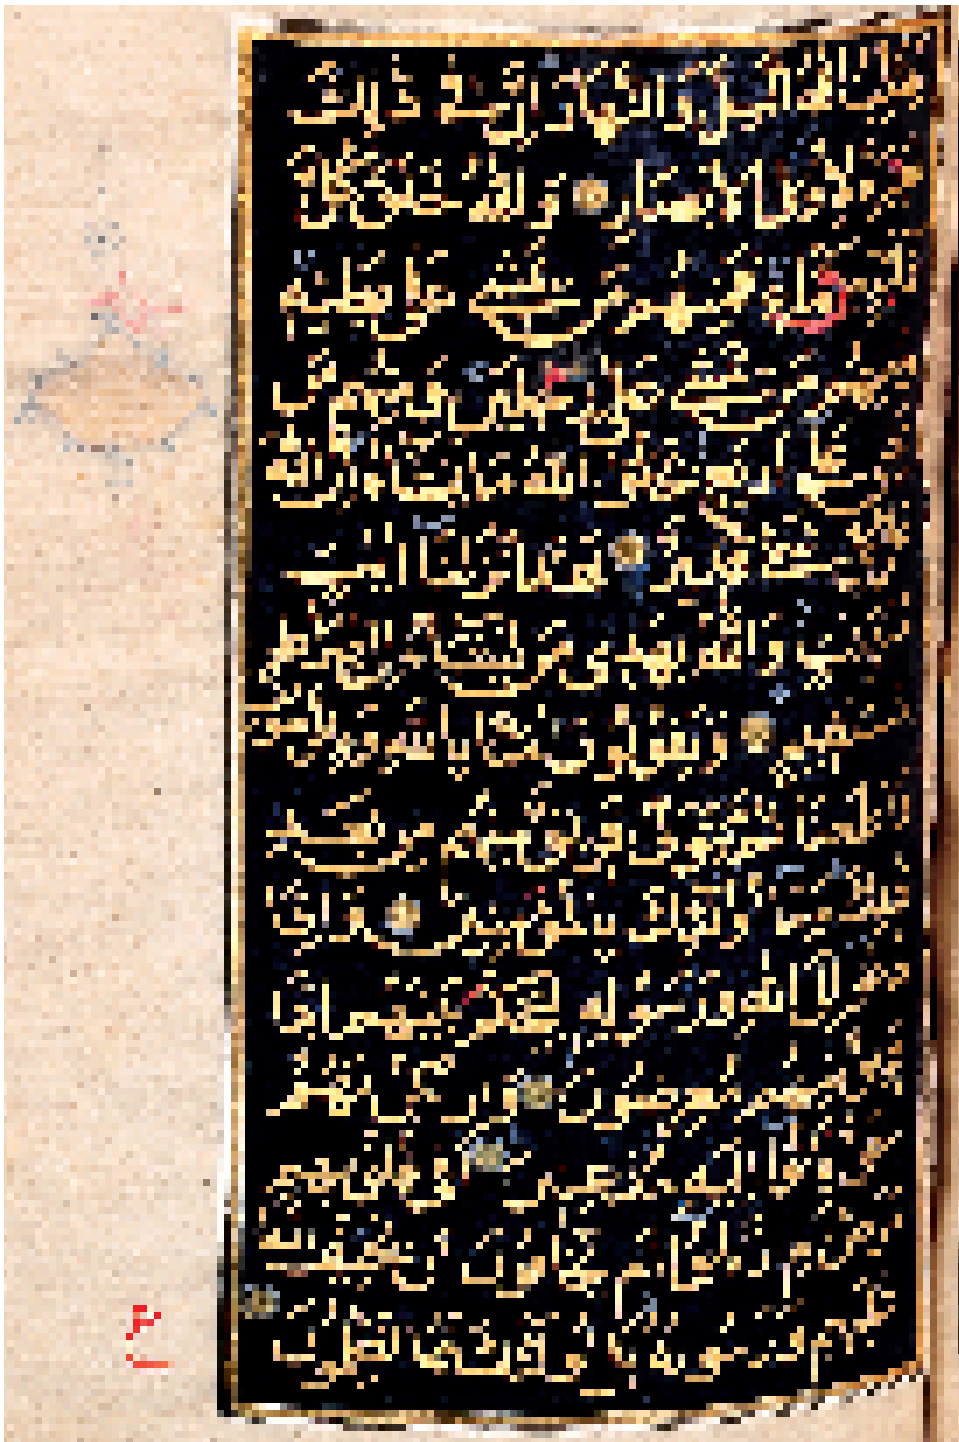 يقلب الله الليل والنهار ان في ذلك
لعبرة لاولي الابصار والله خلق كل
دابة من ماء فمنهم من يمشي على بطنه
ومنهم من يمشي على رجلين ومنهم من
يمشي على اربع يخلق الله ما يشاء ان الله
على كل شيء قدير لقد انزلنا ايت
مبينت والله يهدي من يشاء الى صراط
مستقيم ويقولون امنا بالله وبالرسول
واطعنا ثم يتولى فريق منهم من بعد
ذلك وما اولئك بالمؤمنين واذا
دعوا الى الله ورسوله ليحكم بينهم اذا
فريق منهم معرضون وان يكن لهم
الحق ياتوا اليه مذعنين افي قلوبهم
مرض ام ارتابوا ام يخافون ان يحيف الله
عليهم ورسوله بل اولئك هم الظلمون
ع